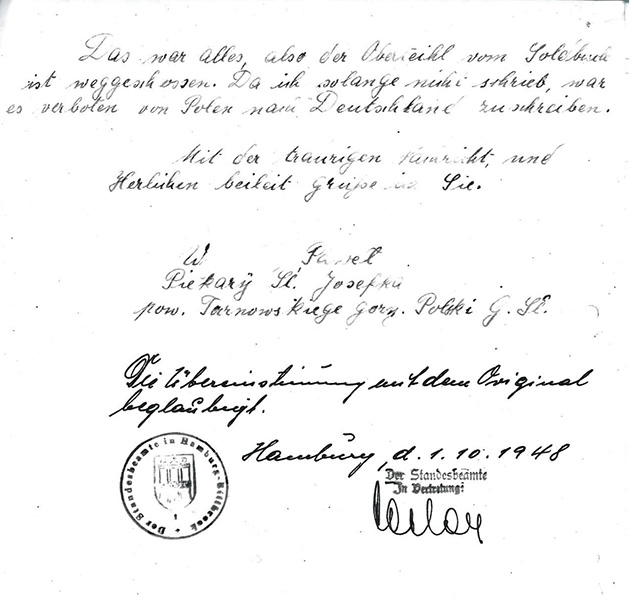 Das war alles, also der Oberteihl vom Soldbuch
ist weggeschossen. Da ich solange nicht schrieb, war
es verboten von Polen nach Deutschland zuschreiben.
Mit der traurigen und
Herlichen beileit grüße ich Sie.
W Pawel
Piekary Sl. Josefka
pow. Tarnowskiege gory. Polski G. Sl.
Die Übereinstimmung mit dem Original
beglaubigt.
Hamburg, d. 1. 10. 1948
Der Standesbeamte
In Vertretung:
Der Standesbeamte in Hamburg-Billbrook
1